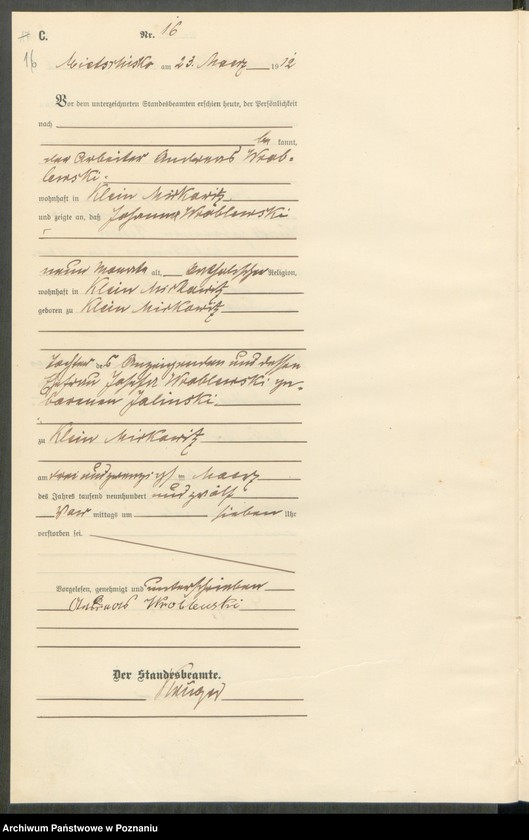 C.
Nr. 16
16
Mietschisko am 23. Maerz 1912
Vor dem unterzeichneten Standesbeamten erschien heute, der Persönlichkeit
nach
be kannt,
der Arbeiter Andreas Wrob-
lewski
wohnhaft in Klein Mirkowitz
und zeigte an, daß Johanna Wroblewski
neun Monate alt, katholischer Religion,
wohnhaft in Klein Mirkowitz
geboren zu Klein Mirkowitz
Tochter des Anzeigenden und dessen
Ehefrau Josefa Wroblewski ge-
borenen Jalinski
zu Klein Mirkowitz
am drei und zwanzigsten Maerz
des Jahres tausend neunhundert und zwölf
Vor mittags um sieben Uhr
verstorben sei.
Vorgelesen, genehmigt und unterschrieben
Andreas Wroblewski
Der Standesbeamte.
Krüger
Archiwum Państwowe w Poznaniu